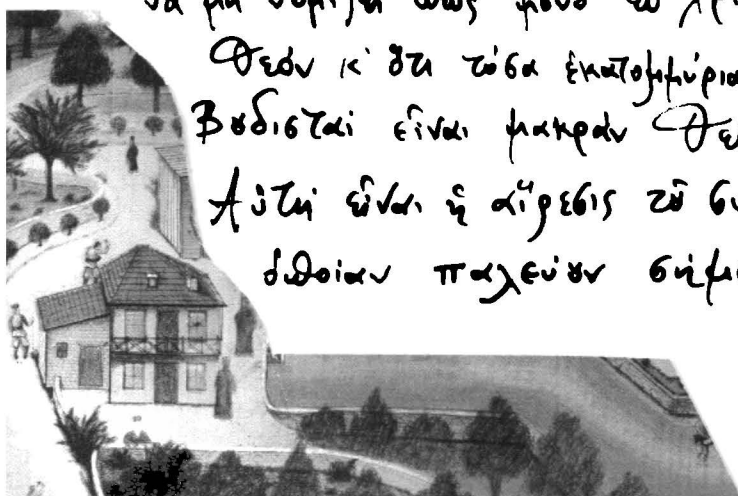 νὰ μὴ νομίζει πῶς μόνο
Θεόν κ' ὅτι τόσα ἑκατομμύρια
Βουδισταὶ εἶναι μακρὰν Θε
Αὐτὴ εἶναι ἡ αἵρεσις τοῦ συ
ὁποίαν παλεύουν σήμε